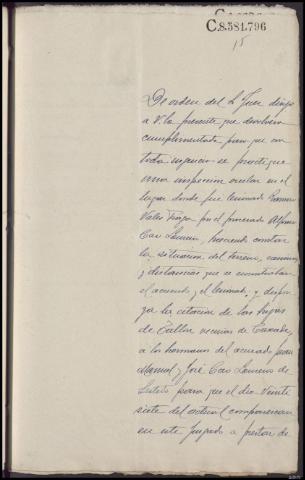 C.8.581.796
15
De orden del Sr Juez dirijo
a V. la presente que devolverá
cumplimentada para que con
toda urgencia se practique
una inspección ocular en el
lugar donde fue lesionado Ramon
por el procesado
haciendo constar
la situacion del terreno, caminos
y distancias que se encontraban
el acusado y el lesionado, y
la citacion de los hijos
de vecinos de
a los hermanos del acusado Juan
Manuel y José
para que el dia veinte
siete del actual comparezcan
en este Juzgado a prestar de